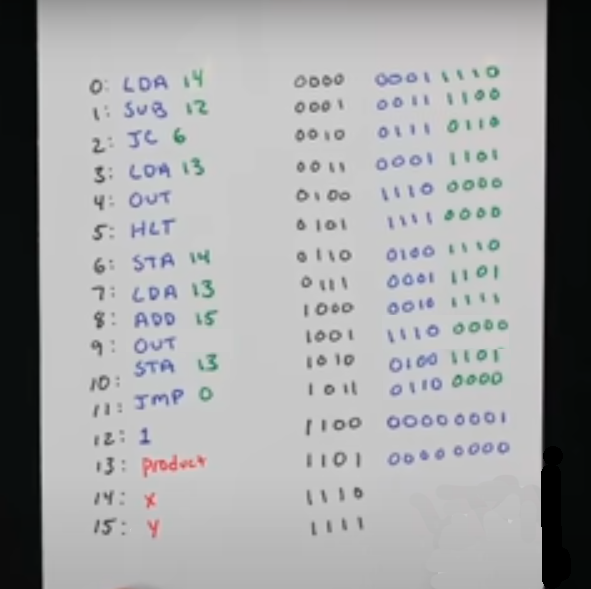 0: LDA 14 0000 0001 1110
1: SUB 12 0001 0011 1100
2: JC 6 0010 0111 0110
3: LDA 13 0011 0001 1101
4: OUT 0100 1110 0000
5: HLT 0101 1111 0000
6: STA 14 0110 0100 1110
7: LDA 13 0111 0001 1101
8: ADD 15 1000 0010 1111
9: OUT 1001 1110 0000
10: STA 13 1010 0100 1101
11: JMP 0 1011 0110 0000
12: 1 1100 00000001
13: product 1101 00000000
14: x 1110
15: y 1111